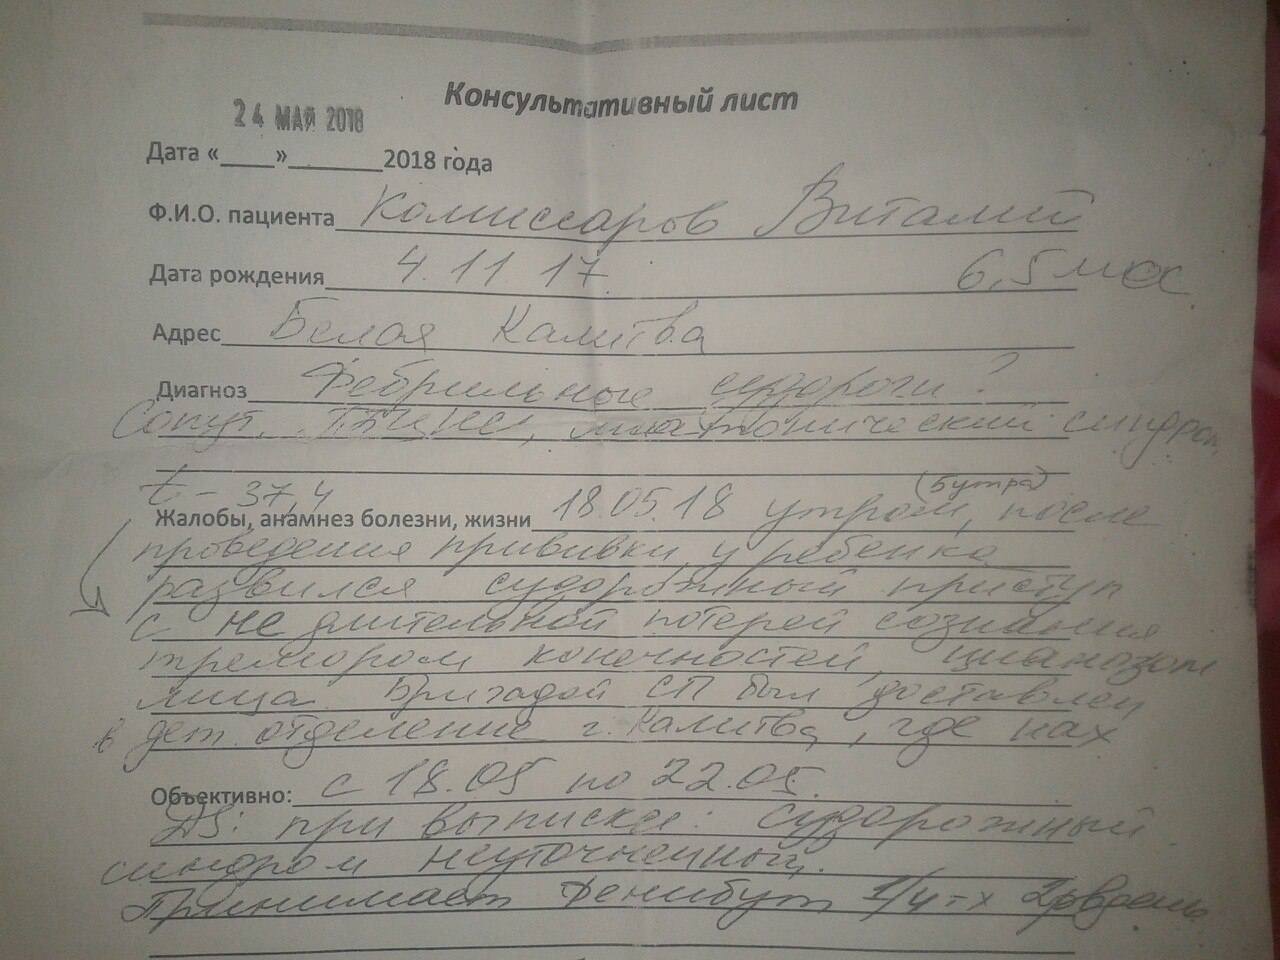 Консультативный лист
24 МАЯ 2018
Дата «____»________2018 года
Ф.И.О. пациента Комиссаров Виталий
Дата рождения 4.11.17. 6,5 мес
Адрес Белая Калитва
Диагноз Фебрильные судороги?
Сопут. ППЦНС, миатонический синдром
t – 37,4 (Бутра)
Жалобы, анамнез болезни, жизни 18.05.18 утром, после
проведения прививки у ребенка
развился судорожный приступ
с не длительной потерей сознания
тремором конечностей, цианозом
лица. Бригадой СП был доставлен
в дет. отделение г. Калитва, где нах
Объективно: с 18.05 по 22.05.
DS: при выписке: судорожный
синдром неуточненный.
Принимает Фенибут 1/4 т х 2р